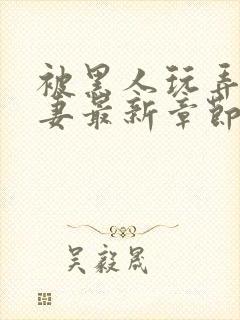 被黑人玩弄
妻最新章节
吴毅晟